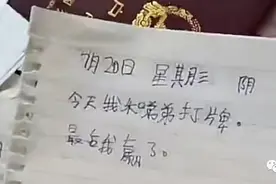 7月20日 星期三 阴
今天我和弟弟打牌。
最后我赢了。